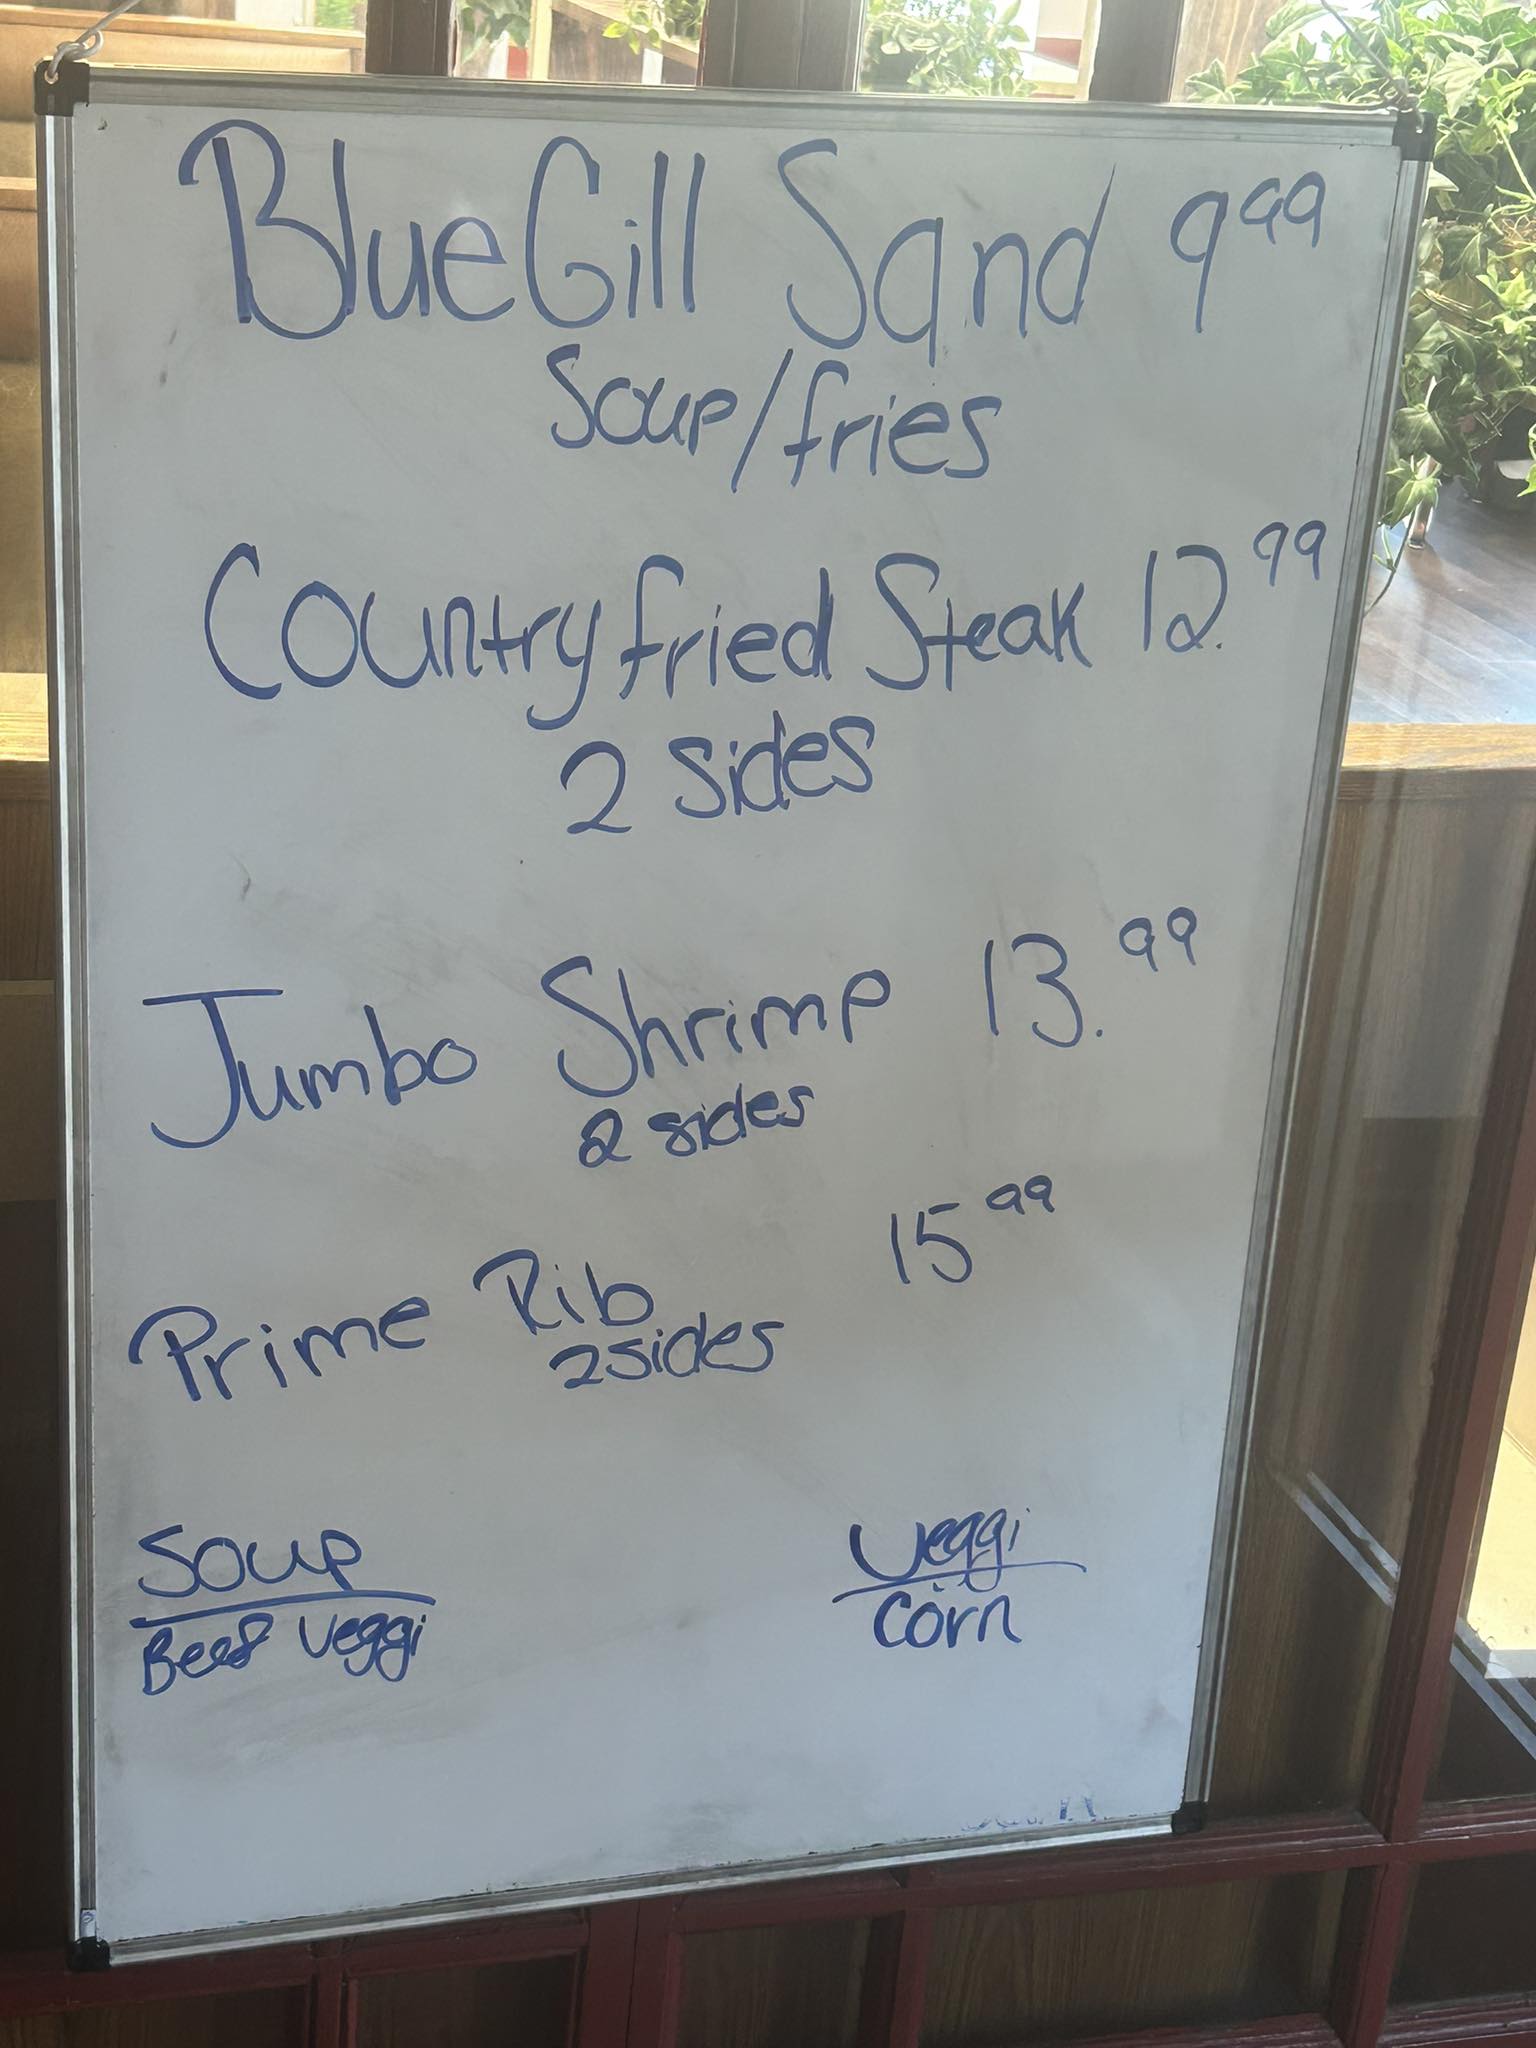 BlueGill Sand 9 99
Soup/fries
Country fried Steak 12. 99
2 sides
Jumbo Shrimp 13. 99
2 sides
Prime Rib 15 99
2 sides
Soup
Beef Veggi
Veggi
Corn